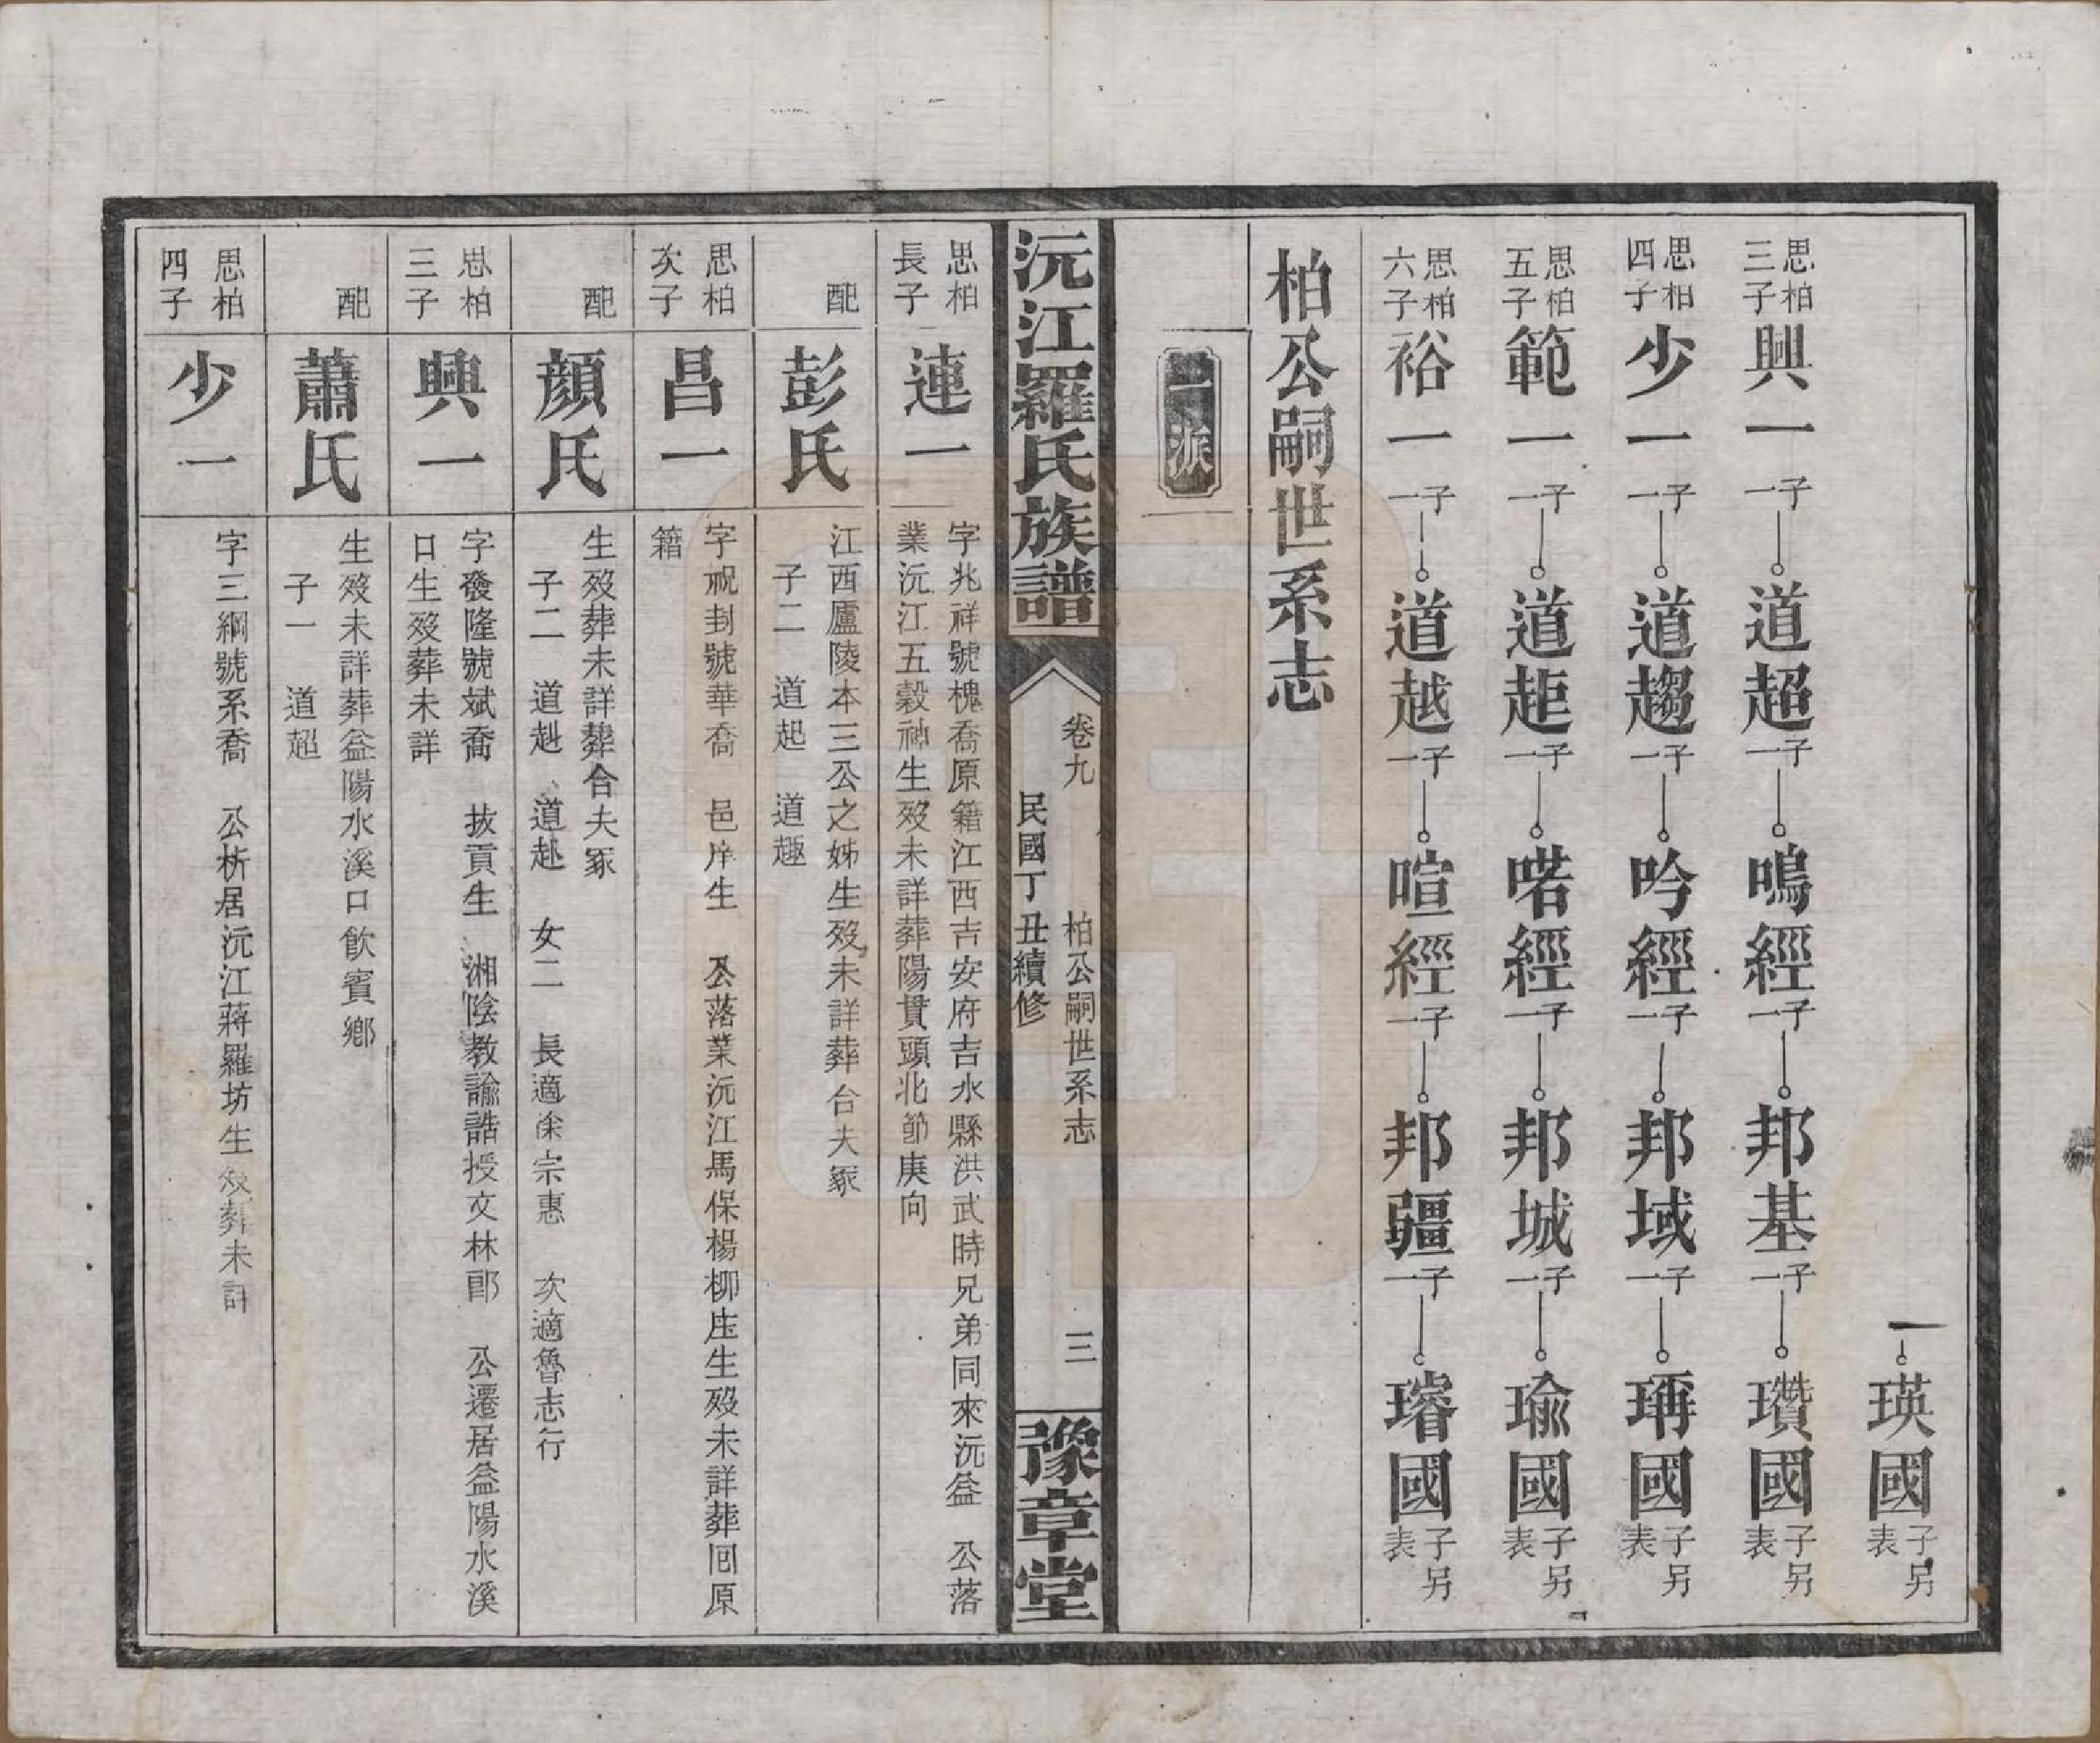 瑛國子另表
思柏三子 興一 子一 道超 子一 鳴經 子一 邦基 子一 瓚國 子另表
思柏四子 少一 子一 道趨 子一 吟經 子一 邦域 子一 瑀國 子另表
思柏五子 範一 子一 道歫 子一 喏經 子一 邦城 子一 瑜國 子另表
思柏六子 裕一 子一 道越 子一 喧經 子一 邦疆 子一 璿國 子另表
柏公嗣世系志
一派
沅江羅氏族譜
卷九 柏公嗣世系志 三
民國丁丑續修
豫章堂
思柏長子
連一
字兆祥號槐喬原籍江西吉安府吉水縣洪武時兄弟同來沅益 公落
業沅江五穀神生歿未詳葬陽貫頭北節庚向
配
彭氏
江西廬陵本三公之姊生歿未詳葬合夫冢
子二 道起 道趣
思柏次子
昌一
字祝封號華喬 邑庠生 公落業沅江馬保楊柳庄生歿未詳葬回原
籍
配
顏氏
生歿葬未詳葬合夫冢
子二 道赳 道赴 女二 長適余宗惠 次適魯志行
思柏三子
興一
字發隆號斌喬 拔貢生 湘陰教諭誥授文林郎 公遷居益陽水溪
口生歿葬未詳
配
蕭氏
生歿未詳葬益陽水溪口飲賓鄉
子一 道超
思柏四子
少一
字三綱號系喬 公析居沅江蔣羅坊生歿葬未詳